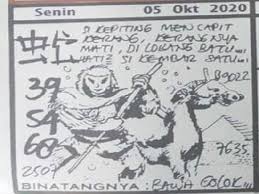 Senin 05 Okt 2020
D KEPITING MENCAPIT
KERANG, KERANGNYA
MATI, DI LOBANG BATU...
MATI SI KEMBAR SATU...
39
54
60
2507
B9022
7635
BINATANGNYA : BAWA GOLOK...